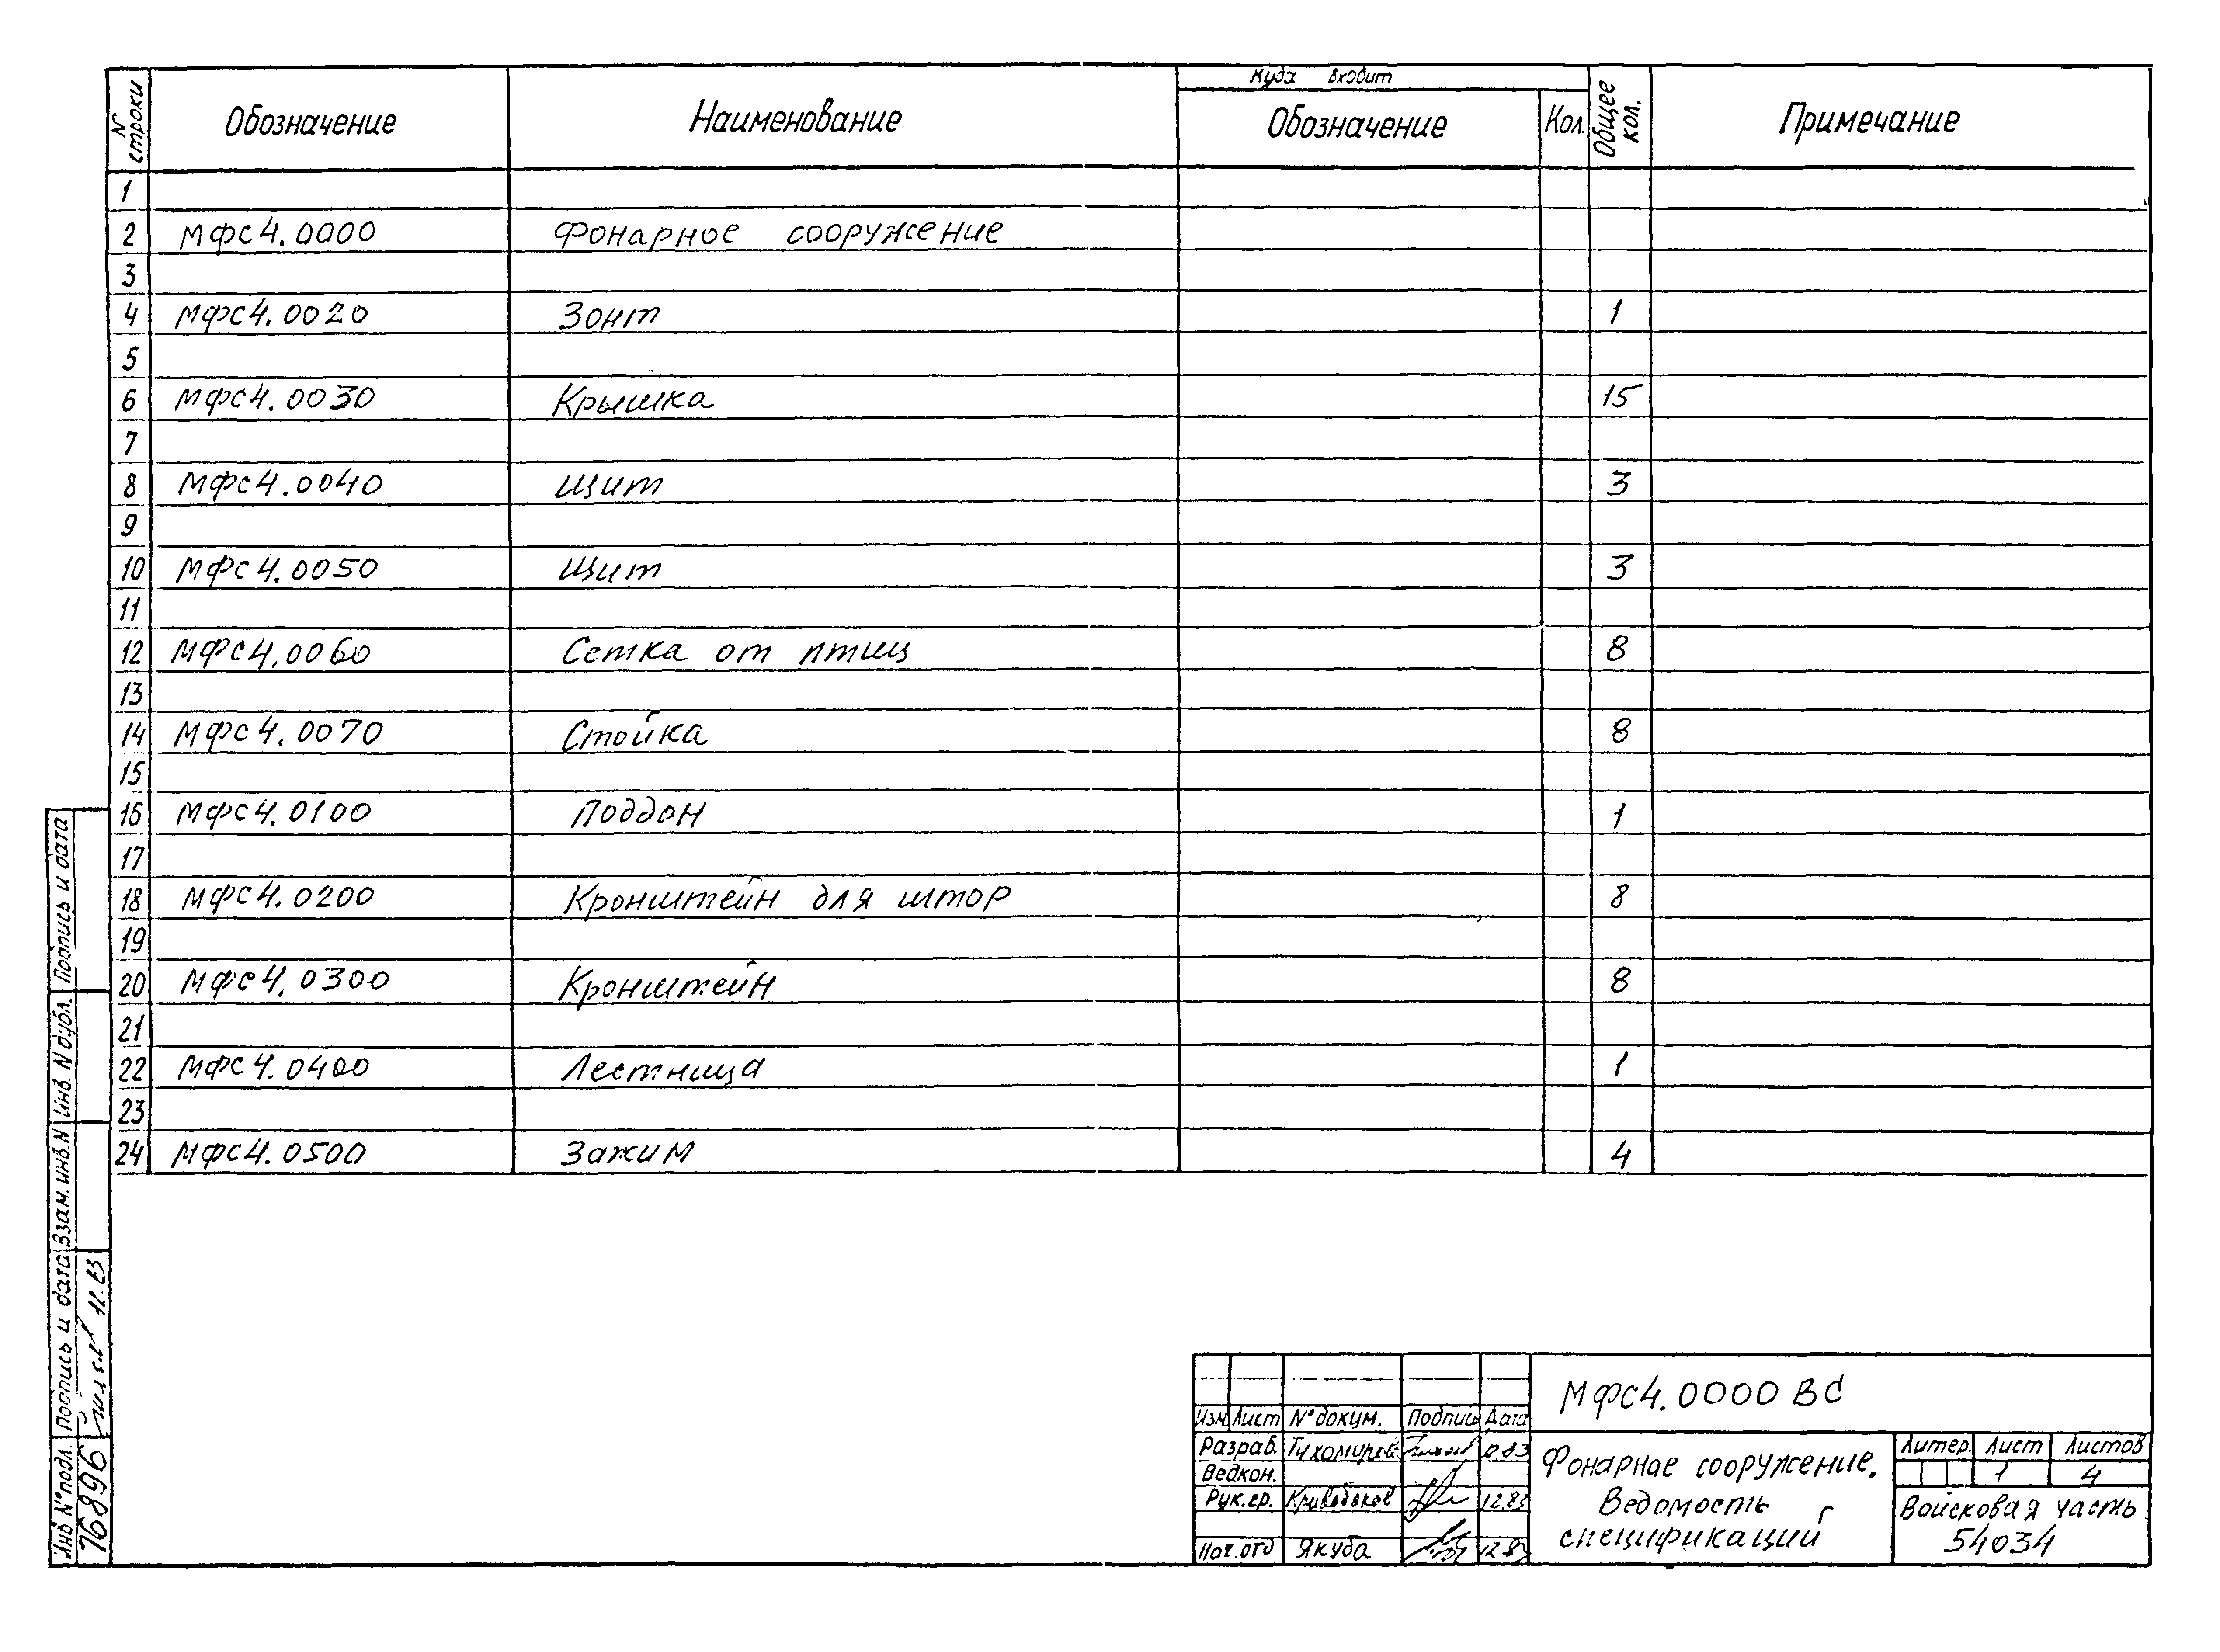 N строки
Обозначение
Наименование
Куда входит
Обозначение
Кол.
Общее кол.
Примечание
1
2 МФС4.0000 Фонарное сооружение
3
4 МФС4.0020 Зонт 1
5
6 МФС4.0030 Крышка 15
7
8 МФС4.0040 Щит 3
9
10 МФС4.0050 Щит 3
11
12 МФС4.0060 Сетка от птиц 8
13
14 МФС4.0070 Стойка 8
15
16 МФС4.0100 Поддон 1
17
18 МФС4.0200 Кронштейн для штор 8
19
20 МФС4.0300 Кронштейн 8
21
22 МФС4.0400 Лестница 1
23
24 МФС4.0500 Зажим 4
Подпись и дата
Инв. N дубл.
Взам. инв. N
Подпись и дата 12.83
Инв N° подл. 76896
МФС4.0000 ВС
Изм Лист N° докум. Подпись Дата
Разраб. Тихомиров 12.83
Вед.кон.
Рук.гр. 12.83
Нач.отд Якуба 12.83
Фонарное сооружение.
Ведомость
спецификаций
Литер. Лист Листов
1 4
Войсковая часть
54034